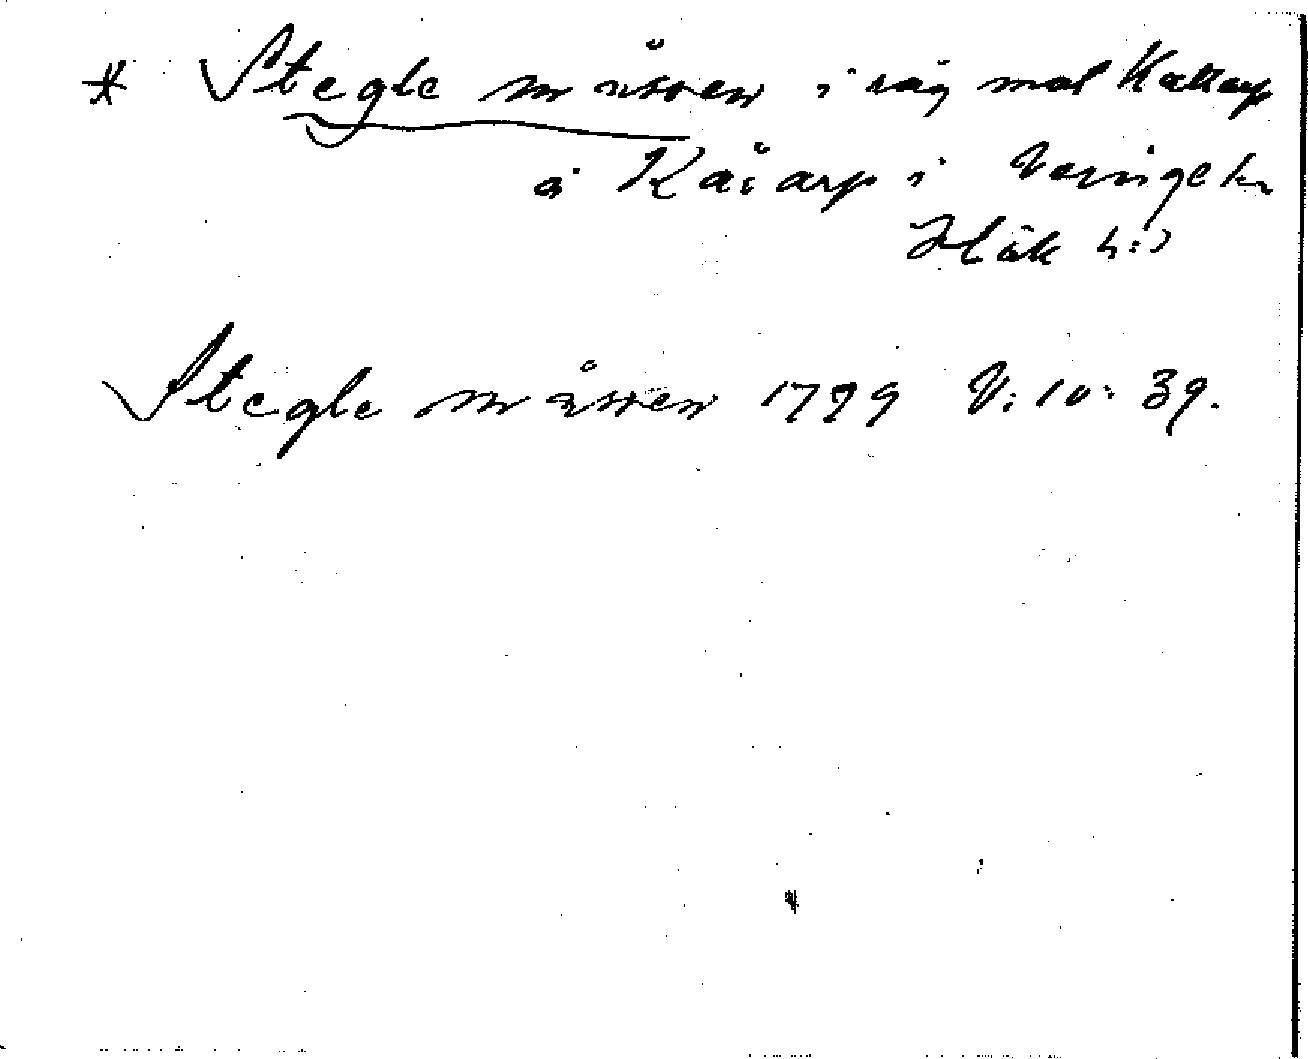 * Stegle måssen i råg mot Kattarp
å Kåarp i Veinge sn
Hök h:d
Stegle måssen 1799 V: 10: 39.